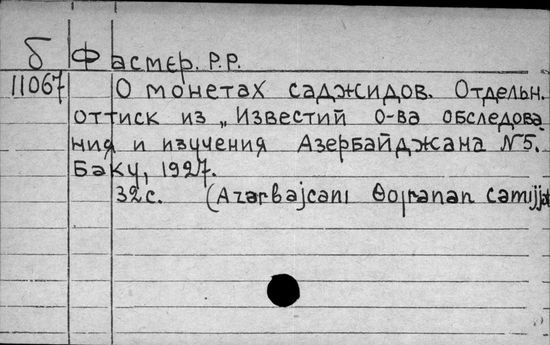 б Фасмер. Р.Р.
11067 О монетах саджидов. Отдельн.
оттиск из „Известий о-ва обследова
ния и изучения Азербайджана №5.
Баку, 1927.
32 с. (Azərbajcanı Өojrənən cəmijjət